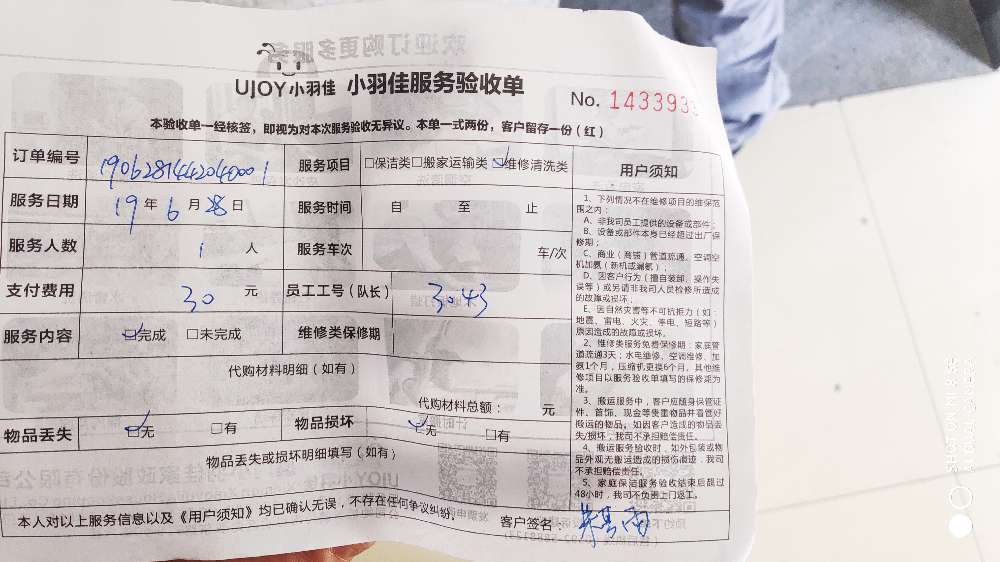 UJOY小羽佳 小羽佳服务验收单
No. 1433933
本验收单一经核签，即视为对本次服务验收无异议。本单一式两份，客户留存一份（红）
订单编号 1906281442040001 服务项目 □保洁类□搬家运输类☑维修清洗类
服务日期 19年6月28日 服务时间 自 至 止
服务人数 1人 服务车次 车/次
支付费用 30元 员工工号（队长） 3043
服务内容 ☑完成 □未完成 维修类保修期
代购材料明细（如有）
代购材料总额： 元
物品丢失 ☑无 □有 物品损坏 ☑无 □有
物品丢失或损坏明细填写（如有）
用户须知
1、下列情况不在维修项目的维保范
围之内：
A、非我司员工提供的设备或部件；
B、设备或部件本身已经超过出厂保
修期；
C、商业（商铺）管道疏通、空调空
机加氨（新机或漏氨）；
D、因客户行为（擅自装卸、操作失
误等）或另请非我司人员检修所造成
的故障或损坏；
E、因自然灾害等不可抗拒力（如：
地震、雷电、火灾、停电、短路等）
原因造成的故障或损坏。
2、维修类服务免费保修期：家庭管
道疏通3天；水电维修、空调维修、加
氨1个月，压缩机更换6个月。其他维
修项目以服务验收单填写的保修期为
准。
3、搬运服务中，客户应随身保管证
件、首饰、现金等贵重物品并看管好
搬运的物品。如因客户造成的物品丢
失/损坏，我司不承担赔偿责任。
4、搬运服务验收时，如外包装或物
品外观无搬运造成的损伤痕迹，我司
不承担赔偿责任。
5、家庭保洁服务验收结束后超过
48小时，我司不负责上门返工。
本人对以上服务信息以及《用户须知》均已确认无误，不存在任何争议纠纷。 客户签名：